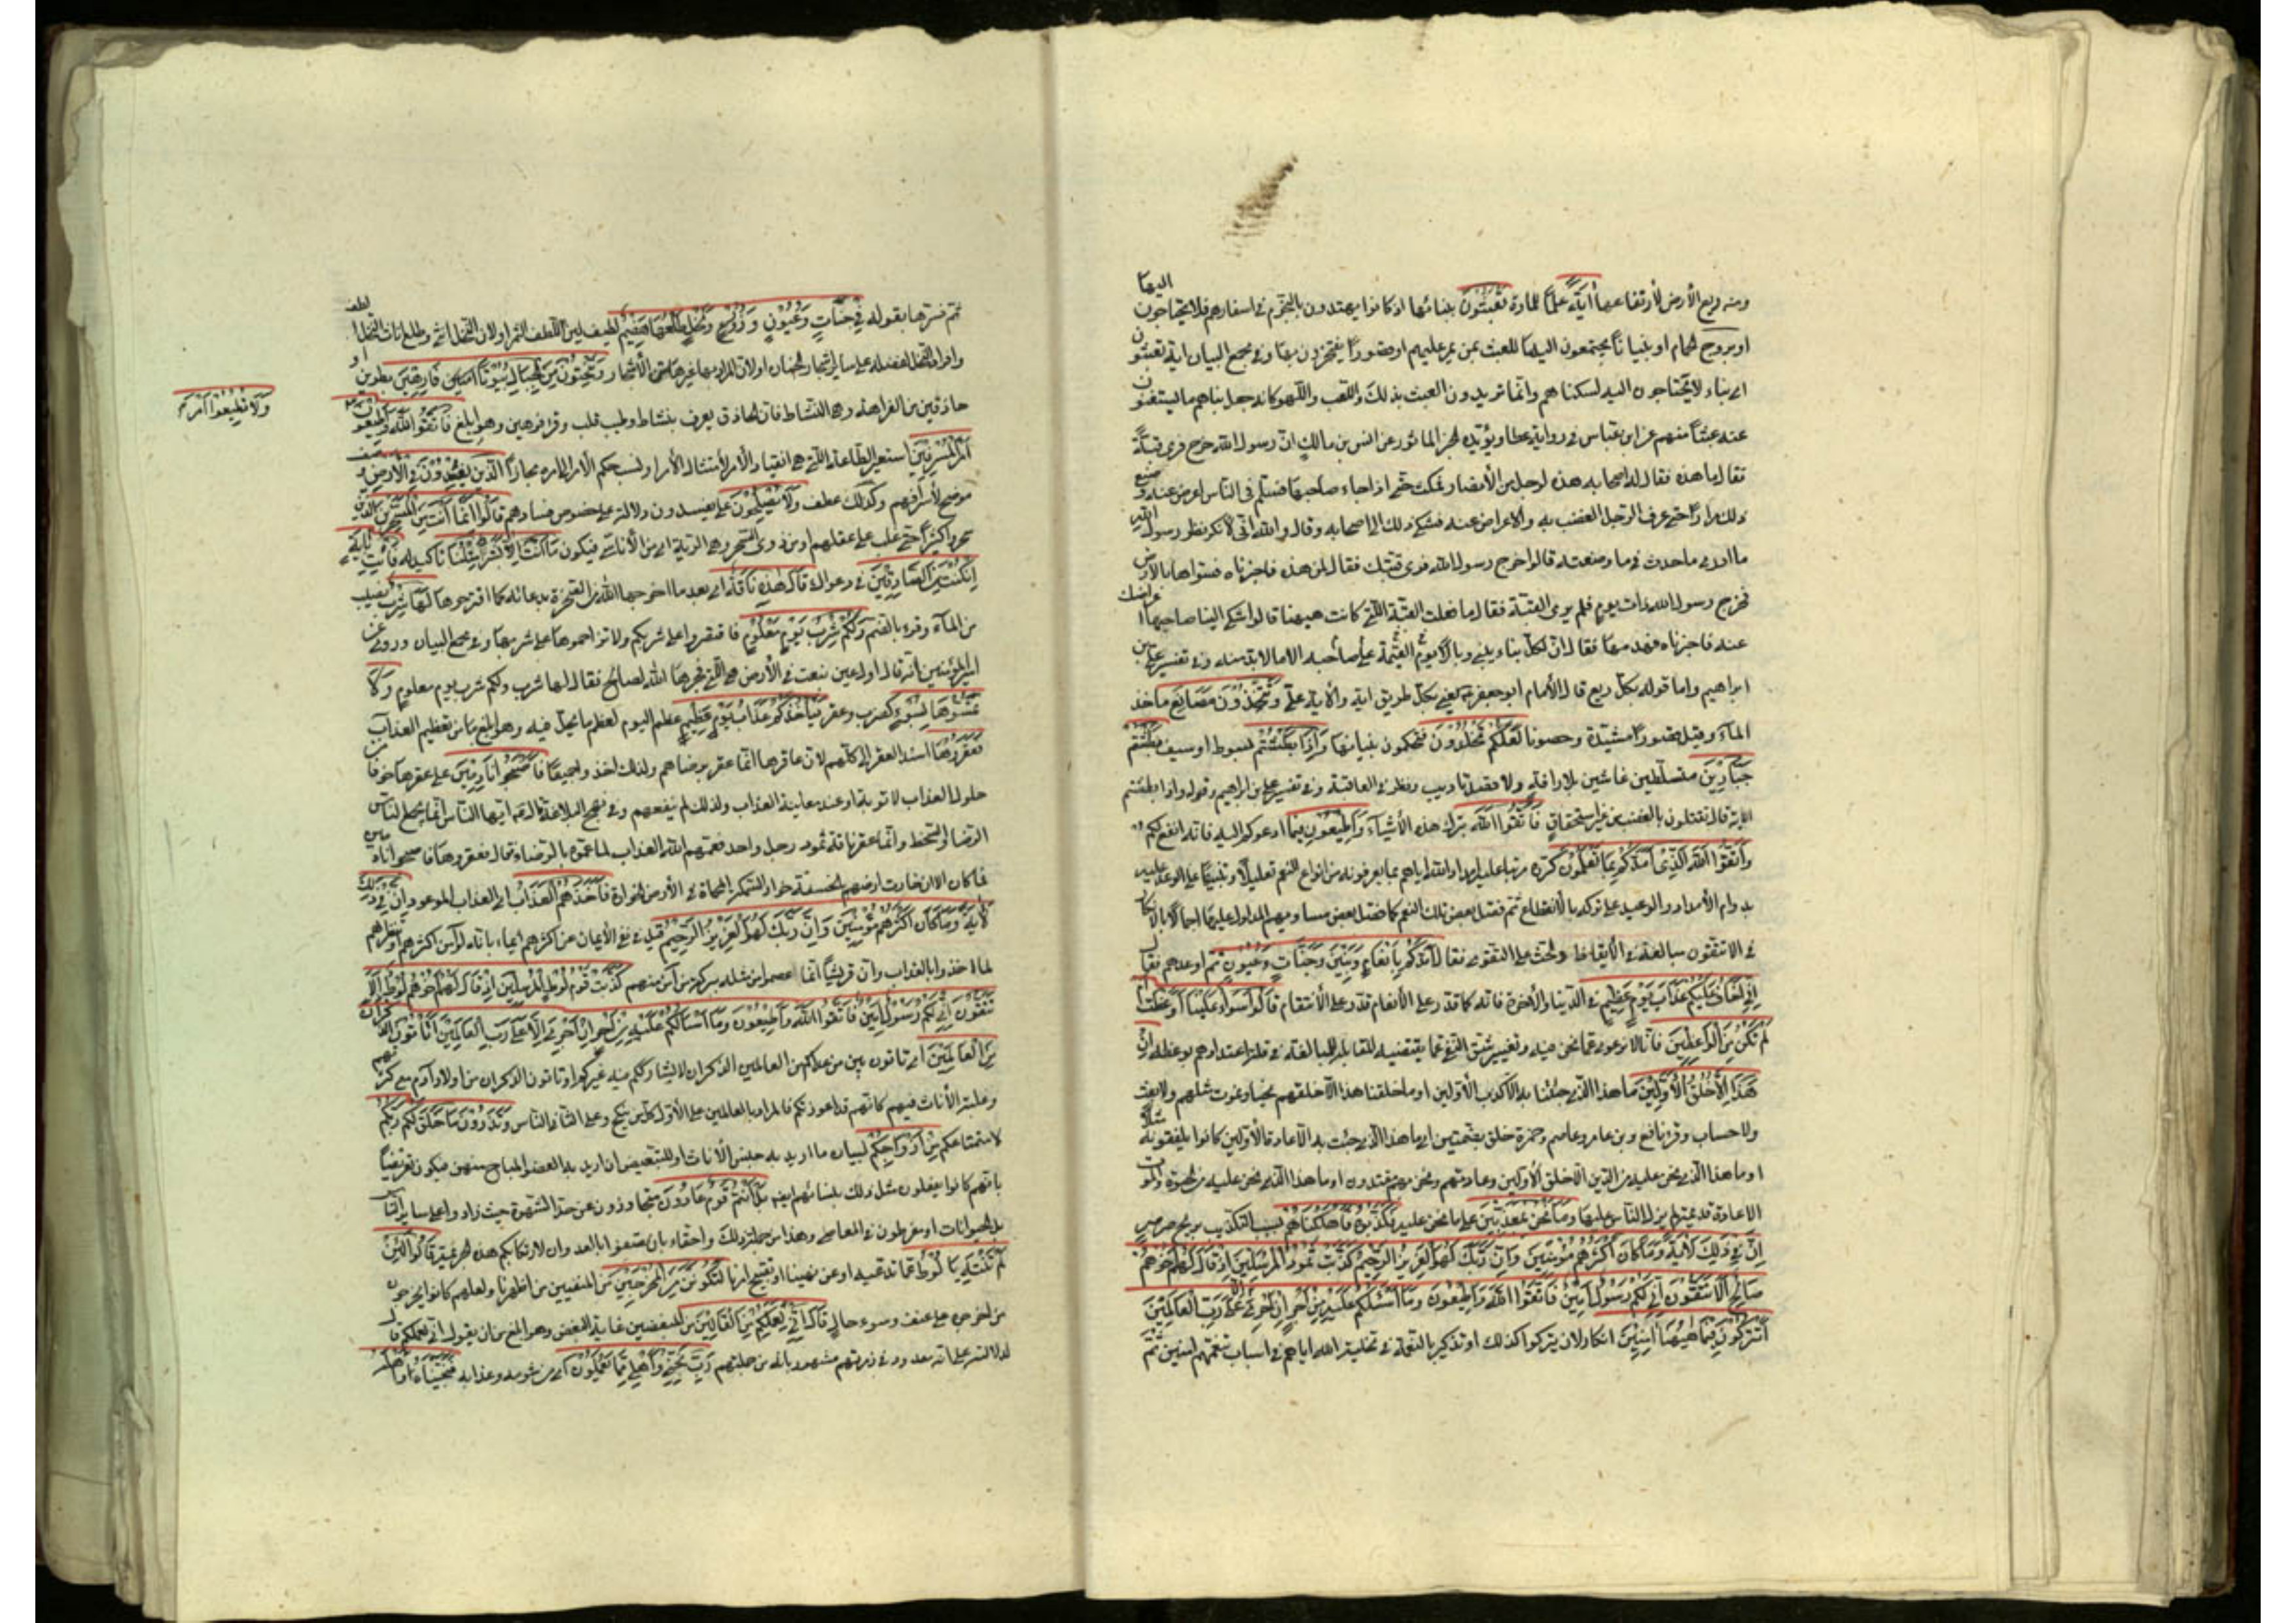 اليها
ومنه ريع الأرض لأرتفاعها أَيَةً علماً للمارة تَعْبَثُونَ ببنائها اذ كانوا يهتدون بالنجوم في اسفارهم فلا يحتاجون
او بروج الحمام او بنياناً يجتمعون اليها للعبث بمن يمر عليهم او قصوراً يفتخرون بها وفي مجمع البيان اية تعبثون
اي بناء لا يحتاجون اليه لسكناهم وانما تريدون العبث بذلك واللعب واللهو كانه جعل بناهم ما يستغنون
عنه عبثاً منهم عن ابن عباس في رواية عطا ويؤيده الخبر المأثور عن انس بن مالك ان رسول الله خرج فرى قبة
فقال ما هذه فقال له اصحابه هذه لرجل من الأنصار فمكث حتى اذا جاء صاحبها فسلم في الناس اعرض عنه وصنع
ذلك مراراً حتى عرف الرجل الغضب به والاعراض عنه فشكى ذلك الى اصحابه وقال والله اني لأنكر نظر رسول الله
ما ادري ما حدث في وما صنعت قالوا خرج رسول الله فرى قبتك فقال لمن هذه فاخبرناه فسواها بالأرض
فخرج رسول الله ذات يوم فلم يرى القبة فقال ما فعلت القبة التي كانت هيهنا قالوا شكى الينا صاحبها اعراضك
عنه فاخبرناه فهدمها فقال ان لكل بناء يبنى وبال يوم القيمة على صاحبه الا ما لا بد منه وفي تفسير علي بن
ابراهيم واما قوله بكل ريع قال الأمام ابو جعفر يعني بكل طريق اية والآية علي وَتَتَّخِذُونَ مَصَانِعَ مآخذ
الماء وقيل قصوراً مشيدة وحصونا لَعَلَّكُمْ تَخْلُدُونَ فتحكمون بنيانها وَاِذَا بَطَشْتُمْ بسوط او سيف بَطَشْتُمْ
جَبَّارِينَ متسلطين غاشين بلا رافة ولا قصد تاديب ونظر في العاقبة وفي تفسير علي بن ابراهيم وقوله واذا بطشتم
الاية قال تقتلون بالغضب من غير استحقاق فَاتَّقُوا اللهَ بترك هذه الأشياء وَاَطِيعُونِ فيما ادعوكم اليه فانه انفع لكم
وَاتَّقُوا اللهَ الَّذِي اَمَدَّكُمْ بِمَا تَعْلَمُونَ كرره مرتبا على امداد الله اياهم بما يعرفونه من انواع النعم تعليلاً وتنبيهاً على الوعد عليه
بدوام الأمداد والوعيد على تركه بالأنقطاع ثم فصل بعض تلك النعم كما فصل بعض مساويهم المدلول عليها اجمالا بالانكار
في الا تتقون مبالغة في الأيقاظ والحث على التقوى فقال اَمَدَّكُمْ بِاَنْعَامٍ وَبَنِينَ وَجَنَّاتٍ وَعُيُونٍ ثم اوعدهم فقال
اِنِّي اَخَافُ عَلَيْكُمْ عَذَابَ يَوْمٍ عَظِيمٍ في الدنيا والأخرة فانه كما قدر على الأنعام قدر على الأنتقام قَالُوا سَوَاءٌ عَلَيْنَا اَوَعَظْتَ اَمْ
لَمْ تَكُنْ مِنَ الْوَاعِظِينَ فانا لا نرعوى عما نحن فيه وتغيير شق النفي عما يقتضيه المقابلة للمبالغة في قلة اعتدادهم بوعظه اِنْ
هَذَا اِلاَّ خُلُقُ الْأَوَّلِينَ ما هذا الذي جئتنا به الا كذب الأولين او ما خلقنا هذا الا خلقهم نحيا ونموت مثلهم ولا بعث
ولا حساب وقرء نافع وبن عامر وعاصم وحمزة خلق بضمتين اي ما هذا الذي جئت به الا عادة الأولين كانوا يلفقون مثله
او ما هذا الذي نحن عليه من الدين الا خلق الأولين وعادتهم ونحن بهم مقتدون او ما هذا الذي نحن عليه من الحيوة والموت
الا عادة قديمة لم يزل الناس عليها وَمَا نَحْنُ بِمُعَذَّبِينَ على ما نحن عليه فَكَذَّبُوهُ فَاَهْلَكْنَاهُمْ بسبب التكذيب بريح صرصر
اِنَّ فِي ذَلِكَ لَأَيَةً وَمَا كَانَ اَكْثَرُهُمْ مُؤْمِنِينَ وَاِنَّ رَبَّكَ لَهُوَ الْعَزِيزُ الرَّحِيمُ كَذَّبَتْ ثَمُودُ الْمُرْسَلِينَ اِذْ قَالَ لَهُمْ اَخُوهُمْ
صَالِحٌ اَلاَ تَتَّقُونَ اِنِّي لَكُمْ رَسُولٌ اَمِينٌ فَاتَّقُوا اللهَ وَاَطِيعُونِ وَمَا اَسْئَلُكُمْ عَلَيْهِ مِنْ اَجْرٍ اِنْ اَجْرِيَ اِلاَّ عَلَى رَبِّ الْعَالَمِينَ
اَتُتْرَكُونَ فِيمَا هٰهُنَا اٰمِنِينَ انكار لان يتركوا كذلك او تذكير بالنعمة في تخلية الله اياهم في اسباب تنعمهم امنين ثم
ثم فسرها بقوله فِي جَنَّاتٍ وَعُيُونٍ وَزُرُوعٍ وَنَخْلٍ طَلْعُهَا هَضِيمٌ لطيف لين للطف الثمر او لان النخل انثى وطلع اناث النخل الطف
وافراد النخل لفضله على ساير اشجار الجنان او لان المراد بها غيرها من الأشجار وَتَنْحِتُونَ مِنَ الْجِبَالِ بُيُوتاً امنين فَارِهِينَ بطرين او
حاذقين من الفراهة وهي النشاط فان الحاذق يعرف بنشاط وطيب قلب وقرء فرهين وهو ابلغ فَاتَّقُوا اللهَ وَاَطِيعُونِ
وَلَا تُطِيعُوا اَمْرَ
اَمْرَ الْمُسْرِفِينَ استعير الطاعة التي هي انقياد الأمر لأمتثال الأمر او نسب حكم الأمر الى امره مجازاً اَلَّذِينَ يُفْسِدُونَ فِي الْأَرْضِ وصف
موضح لأسرافهم وكذلك عطف وَلَا يُصْلِحُونَ على يفسدون دلالة على خلوص فسادهم قَالُوا اِنَّمَا اَنْتَ مِنَ الْمُسَحَّرِينَ الذين
سحروا كثيراً حتى غلب على عقلهم او من ذوي السحر وهي الرية اي من الأناسي فيكون مَا اَنْتَ اِلاَّ بَشَرٌ مِثْلُنَا تاكيد له فَأْتِ بِاٰيَةٍ
اِنْ كُنْتَ مِنَ الصَّادِقِينَ في دعواك قَالَ هٰذِهِ نَاقَةٌ اي بعد ما اخرجها الله من الصخرة بدعائه كما اقترحوها لَهَا شِرْبٌ نصيب
من الماء وقرء بالضم وَلَكُمْ شِرْبُ يَوْمٍ مَعْلُومٍ فاقتصروا على شربكم ولا تزاحموها على شربها وفي مجمع البيان وروي عن
امير المؤمنين انه قال اول عين نبعت في الأرض هي التي فجرها الله لصالح فقال لها شرب ولكم شرب يوم معلوم وَلَا
تَمَسُّوهَا بِسُوءٍ كضرب وعقر فَيَأْخُذَكُمْ عَذَابُ يَوْمٍ عَظِيمٍ عظم اليوم لعظم ما يحل فيه وهو ابلغ من تعظيم العذاب
فَعَقَرُوهَا اسند العقر الى كلهم لان عاقرها انما عقر برضاهم ولذلك اخذوا جميعاً فَاَصْبَحُوا نَادِمِينَ على عقرها خوفا من
حلول العذاب لا توبة او عند معاينة العذاب ولذلك لم ينفعهم وفي نهج البلاغة قال ايها الناس انما يجمع الناس
الرضا والسخط وانما عقر ناقة ثمود رجل واحد فعمهم الله العذاب لما عموه بالرضاء فقال فعقروها فاصبحوا نادمين
فما كان الا ان خارت ارضهم بالخسفة خوار السكة المحماة في الأرض الخوارة فَاَخَذَهُمُ الْعَذَابُ اي العذاب الموعود اِنَّ فِي ذَلِكَ
لَأَيَةً وَمَا كَانَ اَكْثَرُهُمْ مُؤْمِنِينَ وَاِنَّ رَبَّكَ لَهُوَ الْعَزِيزُ الرَّحِيمُ قيل في نفي الأيمان عن اكثرهم ايماء بانه لو آمن اكثرهم او شطرهم
لما اخذوا بالعذاب وان قريشاً انما عصموا من مثله ببركة من آمن منهم كَذَّبَتْ قَوْمُ لُوطٍ الْمُرْسَلِينَ اِذْ قَالَ لَهُمْ اَخُوهُمْ لُوطٌ اَلَا
تَتَّقُونَ اِنِّي لَكُمْ رَسُولٌ اَمِينٌ فَاتَّقُوا اللهَ وَاَطِيعُونِ وَمَا اَسْأَلُكُمْ عَلَيْهِ مِنْ اَجْرٍ اِنْ اَجْرِيَ اِلاَّ عَلَى رَبِّ الْعَالَمِينَ اَتَأْتُونَ الذُّكْرَانَ
مِنَ الْعَالَمِينَ اي تاتون من بين من عداكم من العالمين الذكران لا يشارككم فيه غيركم او تاتون الذكران من اولاد آدم مع كثرتهم
وغلبة الأناث فيهم كانهم قد اعوزنكم فالمراد بالعالمين على الأول كل من ينكح وعلى الثاني الناس وَتَذَرُونَ مَا خَلَقَ لَكُمْ رَبُّكُمْ
لاستمتاعكم مِنْ اَزْوَاجِكُمْ لبيان ما اريد به جنس الأناث او للتبعيض ان اريد به العضو المباح منهن فيكون تعريضاً
بانهم كانوا يفعلون مثل ذلك بنسائهم ايضا بَلْ اَنْتُمْ قَوْمٌ عَادُونَ متجاوزون عن حد الشهوة حيث زادوا على ساير الناس
بل الحيوانات او مفرطون في المعاصي وهذا من جملة ذلك او احقاء بان توصفوا بالعدوان لارتكابكم هذه الجريمة قَالُوا لَئِنْ
لَمْ تَنْتَهِ يَا لُوطُ عما تدعيه او عن نهينا او تقبيح امرنا لَتَكُونَنَّ مِنَ الْمُخْرَجِينَ من المنفيين من اظهرنا ولعلهم كانوا يخرجون
من اخرجوه على عنف وسوء حال قَالَ اِنِّي لِعَمَلِكُمْ مِنَ الْقَالِينَ من المبغضين غاية البغض وهو ابلغ من ان يقول اني لعملكم قال
لدلالته على انه معدود في زمرتهم مشهور بانه من جملتهم رَبِّ نَجِّنِي وَاَهْلِي مِمَّا يَعْمَلُونَ اي من شومه وعذابه فَنَجَّيْنَاهُ وَاَهْلَهُ